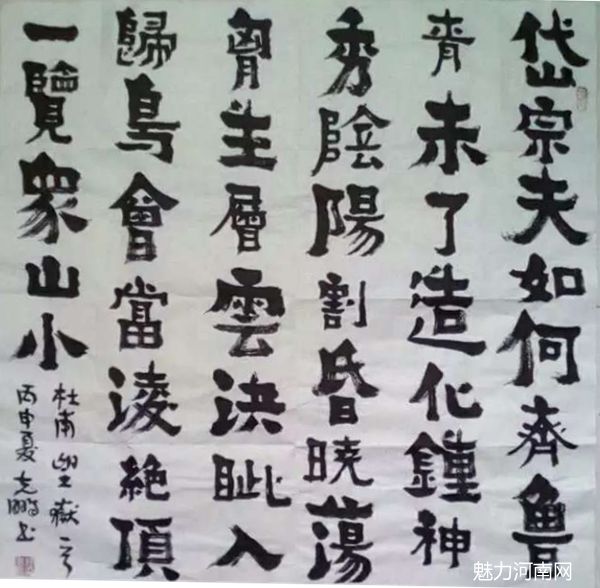 岱宗夫如何齊魯
青未了造化鍾神
秀陰陽割昏曉蕩
胷生層雲決眦入
歸鳥會當淩絕頂
一覽眾山小
杜甫望嶽
丙申夏克鵬书
魅力河南网